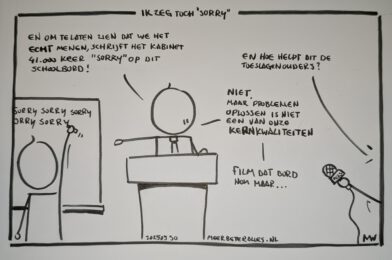 IK ZEG TOCH "SORRY"
EN OM TE LATEN ZIEN DAT WE HET
ECHT MENEN, SCHRIJFT HET KABINET
41.000 KEER "SORRY" OP DIT
SCHOOLBORD!
EN HOE HELPT DIT DE
TOESLAGENOUDERS?
NIET,
MAAR PROBLEMEN
OPLOSSEN IS NIET
EEN VAN ONZE
KERNKWALITEITEN
FILM DAT BORD
NOU MAAR...
SORRY SORRY SORRY
SORRY SORRY
20250930
MEERBETERALLES.NL
MW